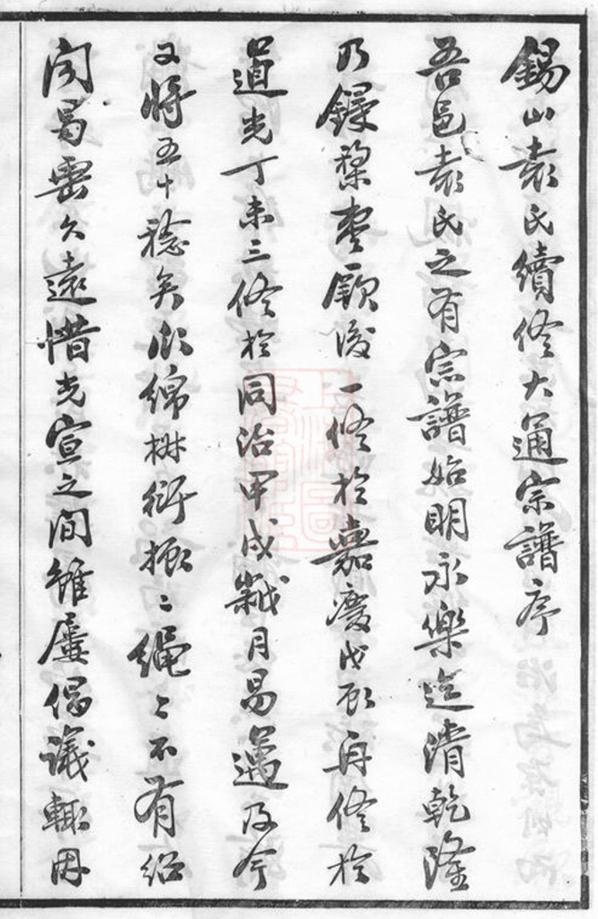 錫山袁氏續修大通宗譜序
吾邑袁氏之有宗譜始明永樂迄清乾隆
乃鋟棃棗厥後一修於嘉慶戊辰再修於
道光丁未三修於同治甲戌歲月易邁及今
又將五十稔矣瓜綿椒衍振振繩繩不有紹
聞曷垂久遠惜光宣之間雖屢倡議輒因